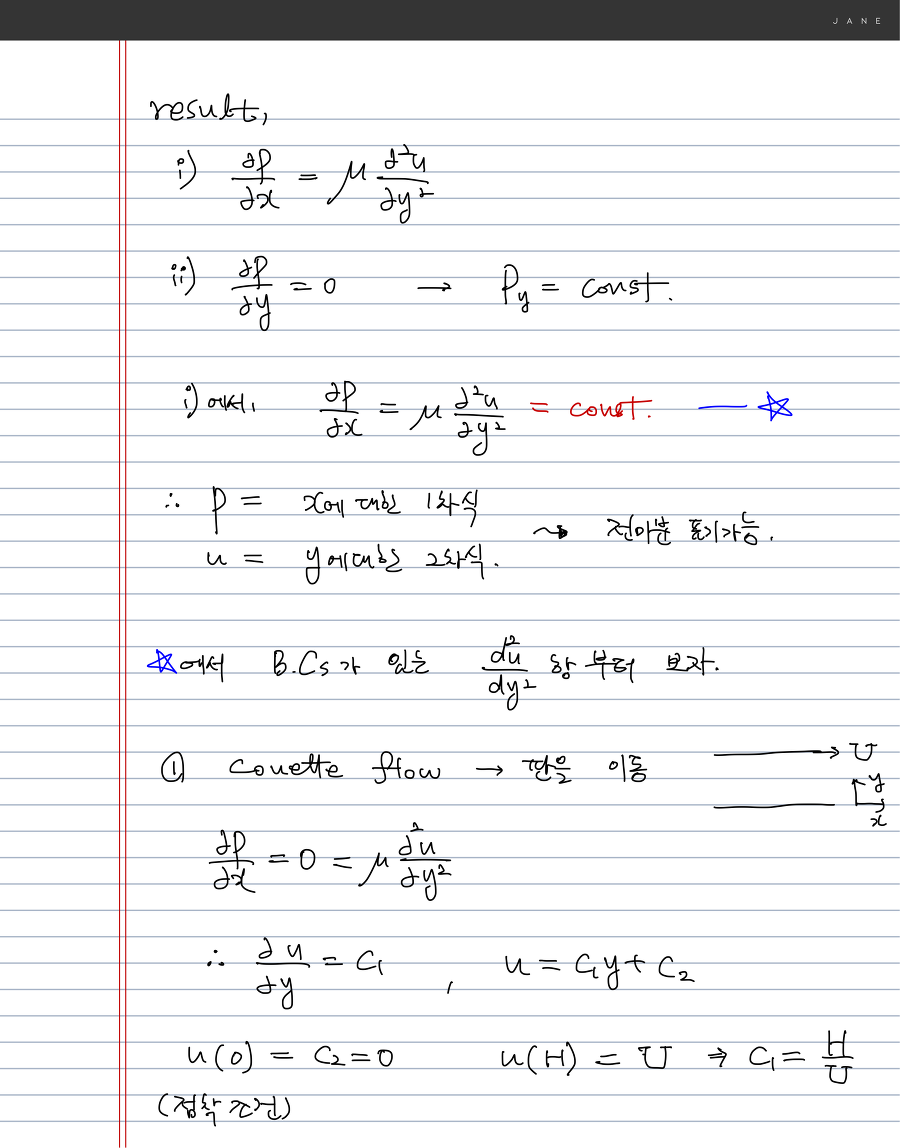 JANE
result,
i) ∂P/∂x = μ ∂²u/∂y²
ii) ∂P/∂y = 0 → Py = const.
i) 에서, ∂P/∂x = μ ∂²u/∂y² = const. — ☆
∴ P = x에 대한 1차식
u = y에 대한 2차식. ⇝ 전미분 표기가능.
☆에서 B.Cs가 있는 d²u/dy² 항 부터 보자.
① Couette flow → 판을 이동 → U
y
x
∂P/∂x = 0 = μ ∂²u/∂y²
∴ ∂u/∂y = C₁ , u = C₁y + C₂
u(0) = C₂ = 0 u(H) = U ⇒ C₁ = H/U
(점착 조건)